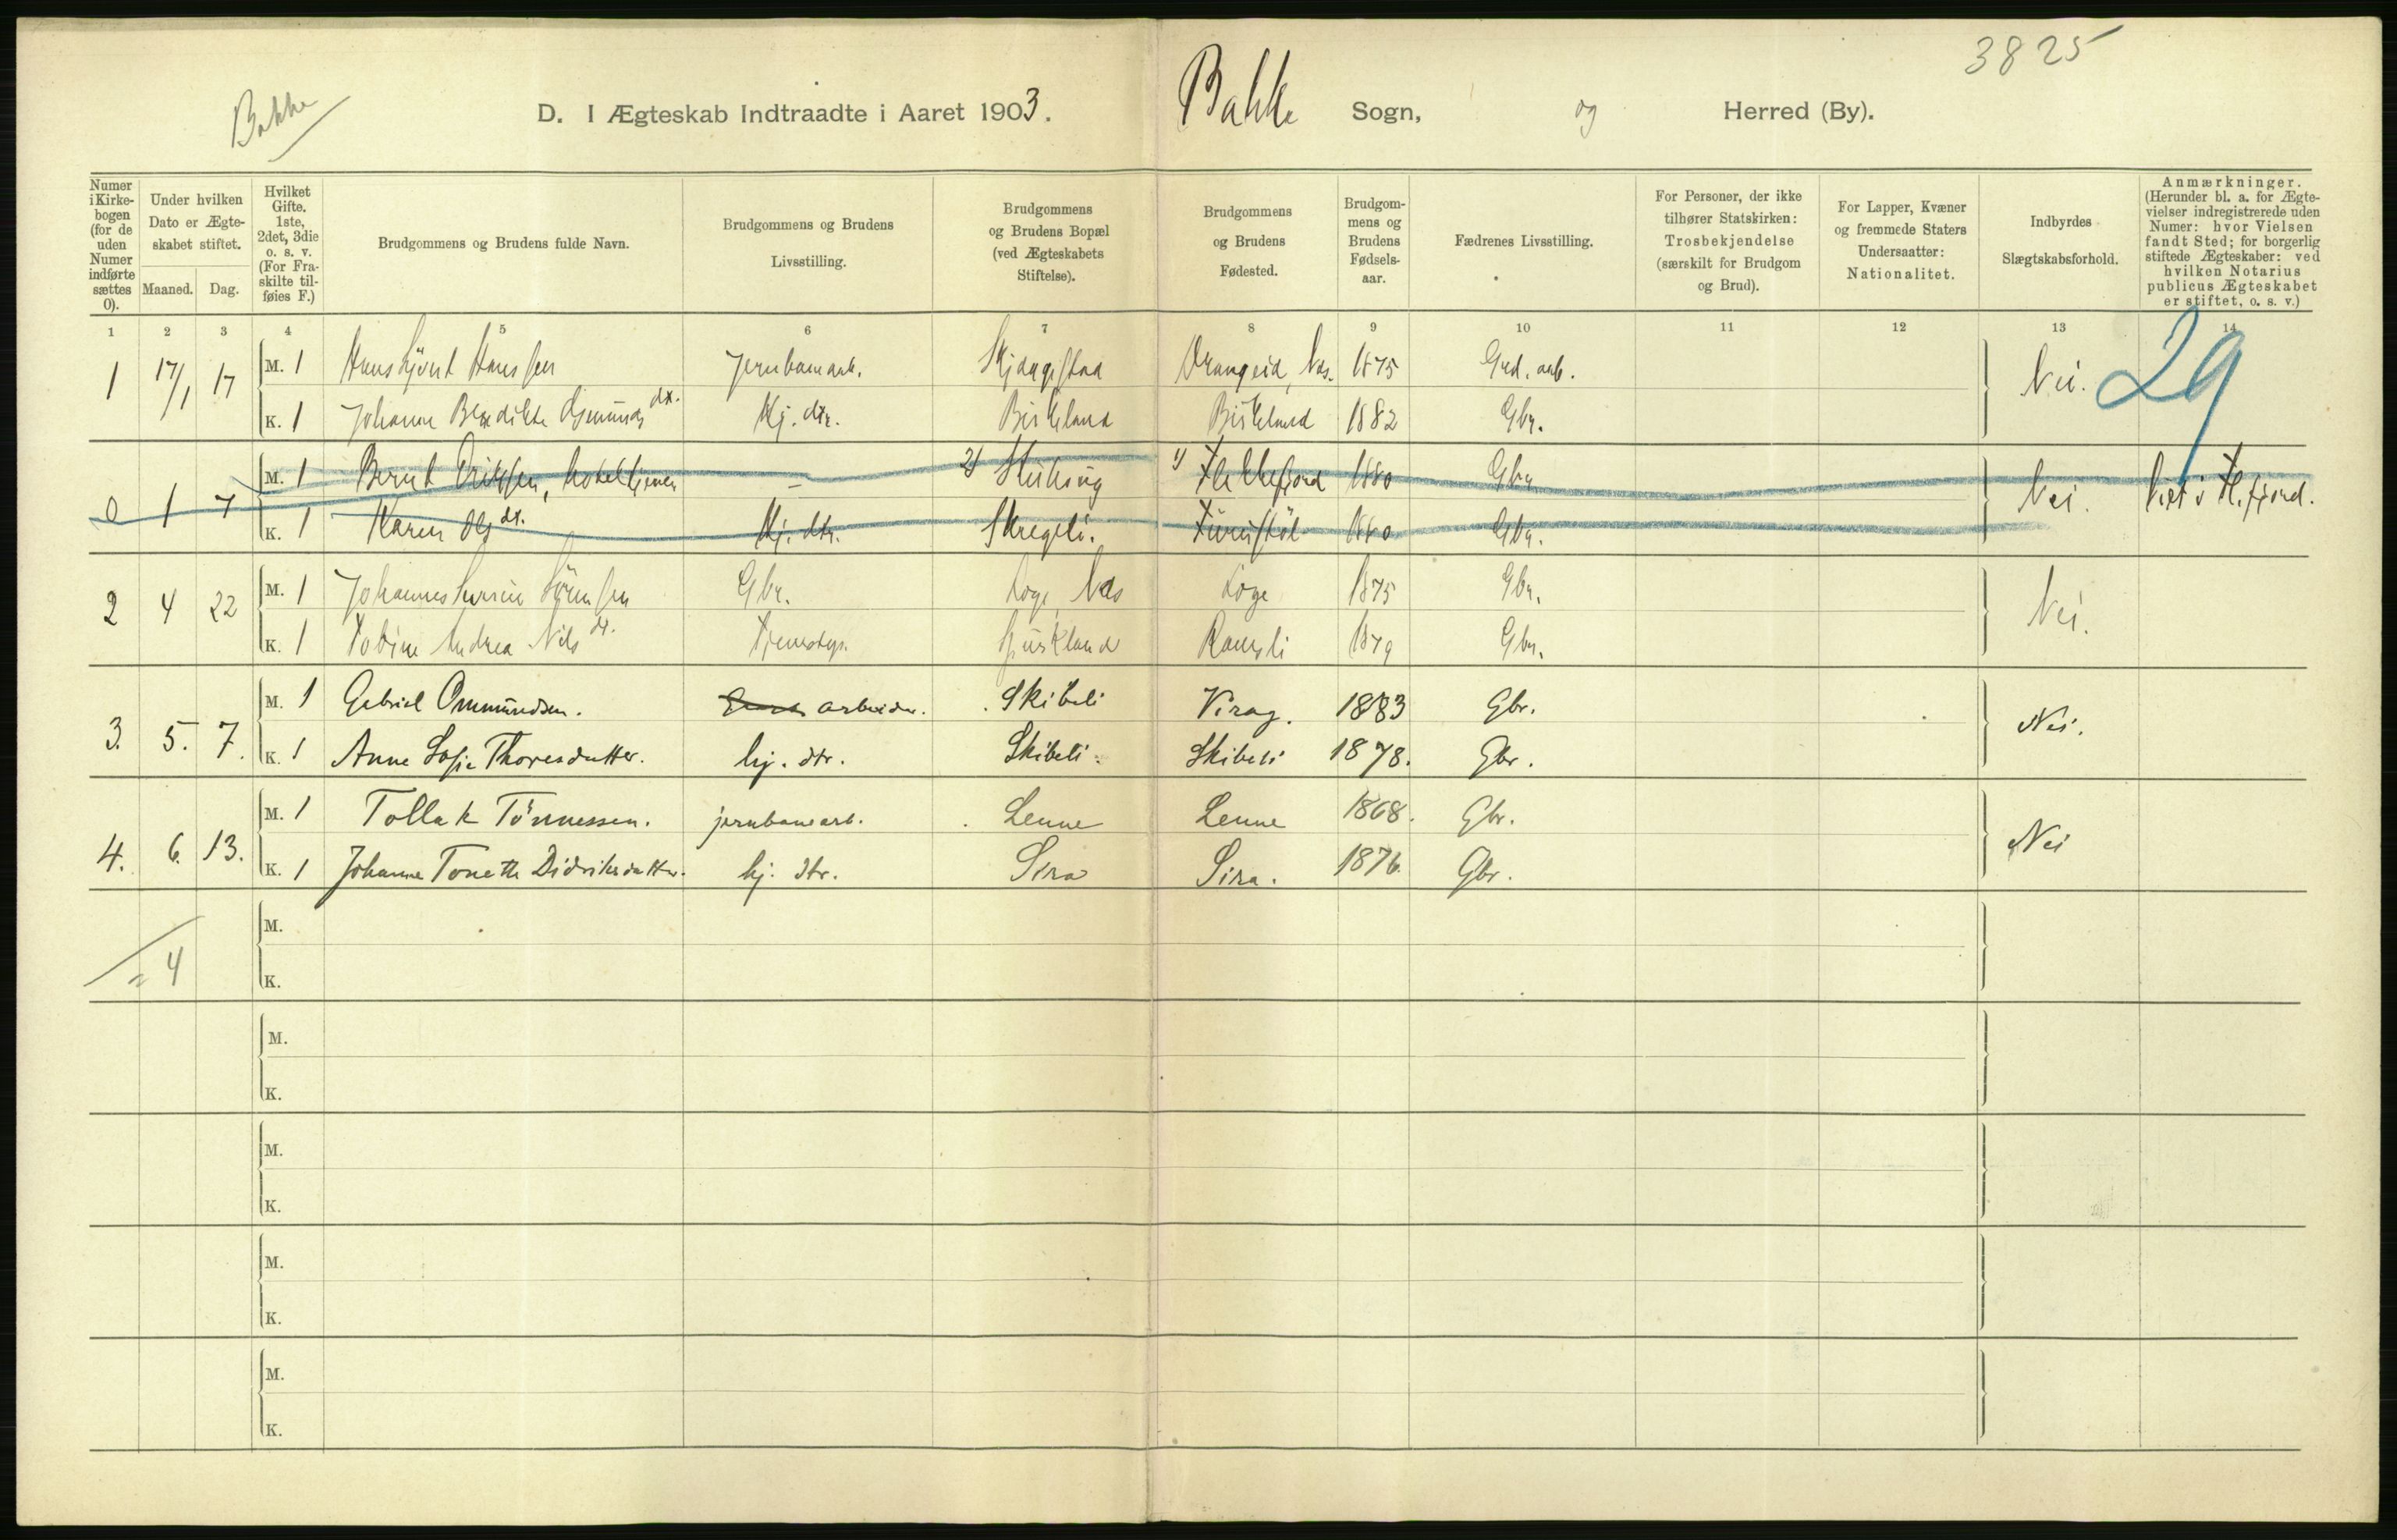 3825
Bakke
D. I Ægteskab Indtraadte i Aaret 1903. Bakke Sogn, og Herred (By).
Numer i Kirkebogen (for de uden Numer indførte sættes 0).
Under hvilken Dato er Ægteskabet stiftet. Maaned. Dag.
Hvilket Gifte. 1ste, 2det, 3die o. s. v. (For Fraskilte tilføies F.)
Brudgommens og Brudens fulde Navn.
Brudgommens og Brudens Livsstilling.
Brudgommens og Brudens Bopæl (ved Ægteskabets Stiftelse).
Brudgommens og Brudens Fødested.
Brudgommens og Brudens Fødselsaar.
Fædrenes Livsstilling.
For Personer, der ikke tilhører Statskirken: Trosbekjendelse (særskilt for Brudgom og Brud).
For Lapper, Kvæner og fremmede Staters Undersaatter: Nationalitet.
Indbyrdes Slægtskabsforhold.
Anmærkninger. (Herunder bl. a. for Ægtevielser indregistrerede uden Numer: hvor Vielsen fandt Sted; for borgerlig stiftede Ægteskaber: ved hvilken Notarius publicus Ægteskabet er stiftet, o. s. v.)
1 2 3 4 5 6 7 8 9 10 11 12 13 14
29
1 17/1 17 M. 1 Hans Hanssen Jernbanearb. 1875 Grd. arb. Nei.
K. 1 Johanne Benedikte dtr. Hj. dtr. Birkeland Birkeland 1882 Gbr.
0 1 7 M. 1 Bernt Eriksen, 2) 1) Flekkefjord 1880 Gbr. Nei. Viet i Fl.fjord.
K. 1 Karen Ols dt. Hj. dtr. Skregeli. 1880 Gbr.
2 4 22 M. 1 Johannes Gbr. Loge Næs Loge 1875 Gbr. Nei.
K. 1 Tobine Andrea Nils dt. Ramsli 1879 Gbr.
3. 5. 7. M. 1 Gabriel Ommundsen. arbeider. Skibeli Virag. 1883 Gbr. Nei.
K. 1 Anne Sofie Thoresdatter. hj. dtr. Skibeli. Skibeli 1878. Gbr.
4. 6. 13. M. 1 Tollak Tönnessen. jernbanearb. Lenne Lenne 1868. Gbr. Nei
K. 1 Johanne Tonette Didriksdatter. hj. dtr. Sira Sira. 1876. Gbr.
M.
= 4
K.
M.
K.
M.
K.
M.
K.
M.
K.